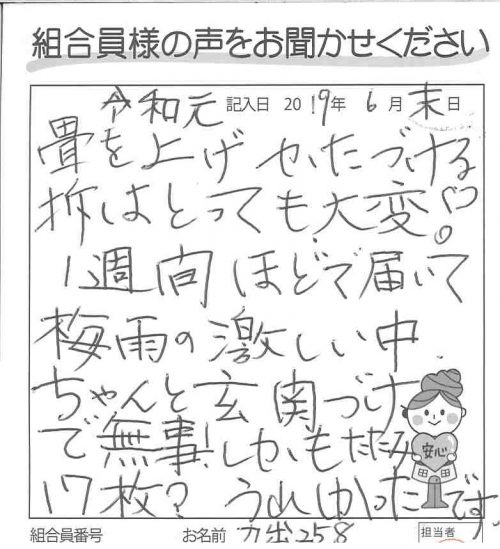 組合員様の声をお聞かせください
令和元 記入日 2019年 6月末日
畳を上げ かたづける
折はとっても大変!
1週間ほどで届いて
梅雨の激しい中
ちゃんと玄関づけ
で無事!しかもたたみ
17枚? うれしかったです。
安心
組合員番号 お名前 258 担当者